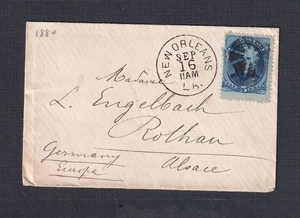 1880
NEW ORLEANS
SEP
16
11AM
LA.
Madame
L. Engelbach
Rothau
Germany
Alsace
Europa